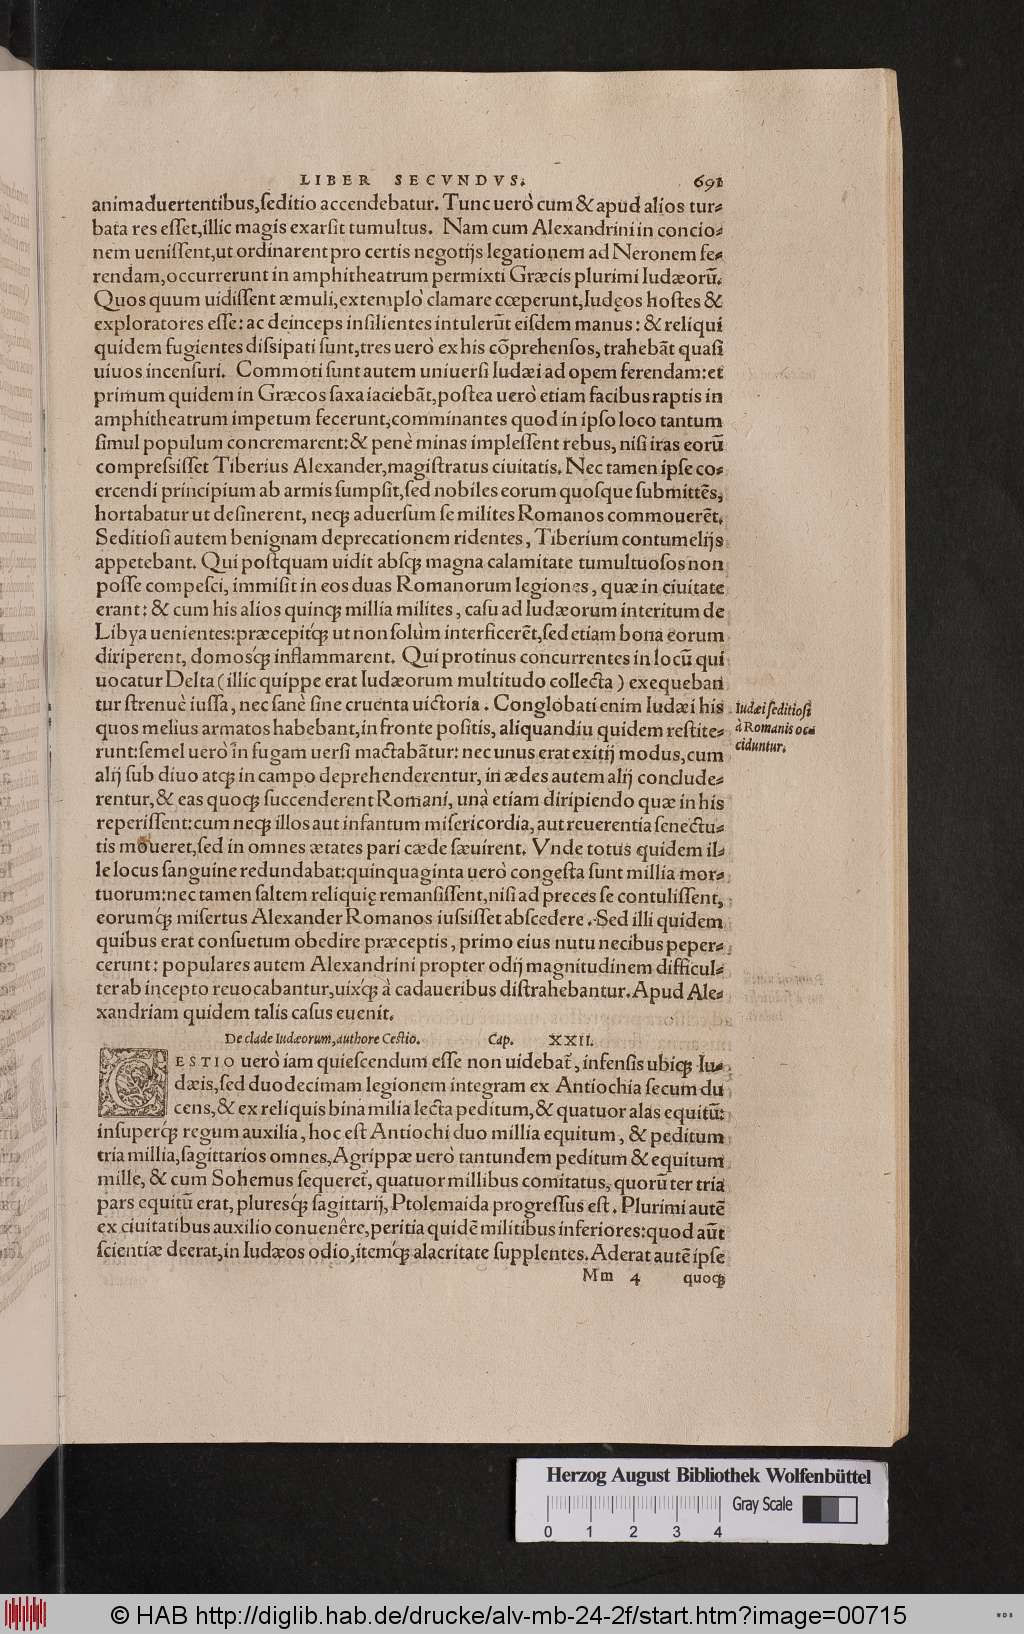 LIBER SECVNDVS. 691
animaduertentibus,ſeditio accendebatur. Tunc uerò cum & apud alios tur⸗
bata res eſſet,illic magis exarſit tumultus. Nam cum Alexandrini in concio⸗
nem ueniſſent,ut ordinarent pro certis negotijs legationem ad Neronem fe⸗
rendam,occurrerunt in amphitheatrum permixti Græcis plurimi Iudæorũ.
Quos quum uidiſſent æmuli,extemplò clamare cœperunt,Iudęos hoſtes &
exploratores eſſe: ac deinceps inſilientes intulerũt eiſdem manus: & reliqui
quidem fugientes diſsipati ſunt,tres uerò ex his cõprehenſos, trahebãt quaſi
uiuos incenſuri. Commoti ſunt autem uniuerſi Iudæi ad opem ferendam: et
primum quidem in Græcos ſaxa iaciebãt,poſtea uerò etiam facibus raptis in
amphitheatrum impetum fecerunt,comminantes quod in ipſo loco tantum
ſimul populum concremarent: & penè minas impleſſent rebus, niſi iras eorũ
compreſsiſſet Tiberius Alexander,magiſtratus ciuitatis. Nec tamen ipſe co⸗
ercendi principium ab armis ſumpſit,ſed nobiles eorum quoſque ſubmittẽs,
hortabatur ut deſinerent, neqꝫ aduerſum ſe milites Romanos commouerẽt.
Seditioſi autem benignam deprecationem ridentes, Tiberium contumelijs
appetebant. Qui poſtquam uidit abſqꝫ magna calamitate tumultuoſos non
poſſe compeſci, immiſit in eos duas Romanorum legiones, quæ in ciuitate
erant: & cum his alios quinqꝫ millia milites, caſu ad Iudæorum interitum de
Libya uenientes: præcepitq́ꝫ ut non ſolùm interficerẽt,ſed etiam bona eorum
diriperent, domosq́ꝫ inflammarent. Qui protinus concurrentes in locũ qui
uocatur Delta (illic quippe erat Iudæorum multitudo collecta) exequeban
tur ſtrenuè iuſſa, nec ſanè ſine cruenta uictoria. Conglobati enim Iudæi his
quos melius armatos habebant,in fronte poſitis, aliquandiu quidem reſtite⸗
runt: ſemel uerò in fugam uerſi mactabãtur: nec unus erat exitij modus,cum
alij ſub diuo atqꝫ in campo deprehenderentur, in ædes autem alij conclude⸗
rentur,& eas quoqꝫ ſuccenderent Romani, unà etiam diripiendo quæ in his
reperiſſent: cum neqꝫ illos aut infantum miſericordia, aut reuerentia ſenectu⸗
tis moueret,ſed in omnes ætates pari cæde ſæuirent. Vnde totus quidem il⸗
le locus ſanguine redundabat: quinquaginta uerò congeſta ſunt millia mor⸗
tuorum: nec tamen ſaltem reliquię remanſiſſent,niſi ad preces ſe contuliſſent,
eorumq́ꝫ miſertus Alexander Romanos iuſsiſſet abſcedere. Sed illi quidem
quibus erat conſuetum obedire præceptis, primo eius nutu necibus peper⸗
cerunt: populares autem Alexandrini propter odij magnitudinem difficul⸗
ter ab incepto reuocabantur,uixq́ꝫ à cadaueribus diſtrahebantur. Apud Ale⸗
xandriam quidem talis caſus euenit.
Iudæi ſeditioſi
à Romanis oc⸗
ciduntur.
De clade Iudæorum, authore Ceſtio. Cap. XXII.
CESTIO uerò iam quieſcendum eſſe non uidebat᷑, infenſis ubiqꝫ Iu⸗
dæis,ſed duodecimam legionem integram ex Antiochia ſecum du
cens,& ex reliquis bina milia lecta peditum,& quatuor alas equitũ:
inſuperq́ꝫ regum auxilia, hoc eſt Antiochi duo millia equitum, & peditum
tria millia,ſagittarios omnes,Agrippæ uerò tantundem peditum & equitum
mille, & cum Sohemus ſequeret᷑, quatuor millibus comitatus, quorũ ter tria
pars equitũ erat, pluresq́ꝫ ſagittarij, Ptolemaida progreſſus eſt. Plurimi autẽ
ex ciuitatibus auxilio conuenêre,peritia quidẽ militibus inferiores: quod aũt
ſcientiæ deerat,in Iudæos odio,itemq́ꝫ alacritate ſupplentes. Aderat autẽ ipſe
Mm 4 quoqꝫ
Herzog August Bibliothek Wolfenbüttel
Gray Scale
0 1 2 3 4
© HAB http://diglib.hab.de/drucke/alv-mb-24-2f/start.htm?image=00715